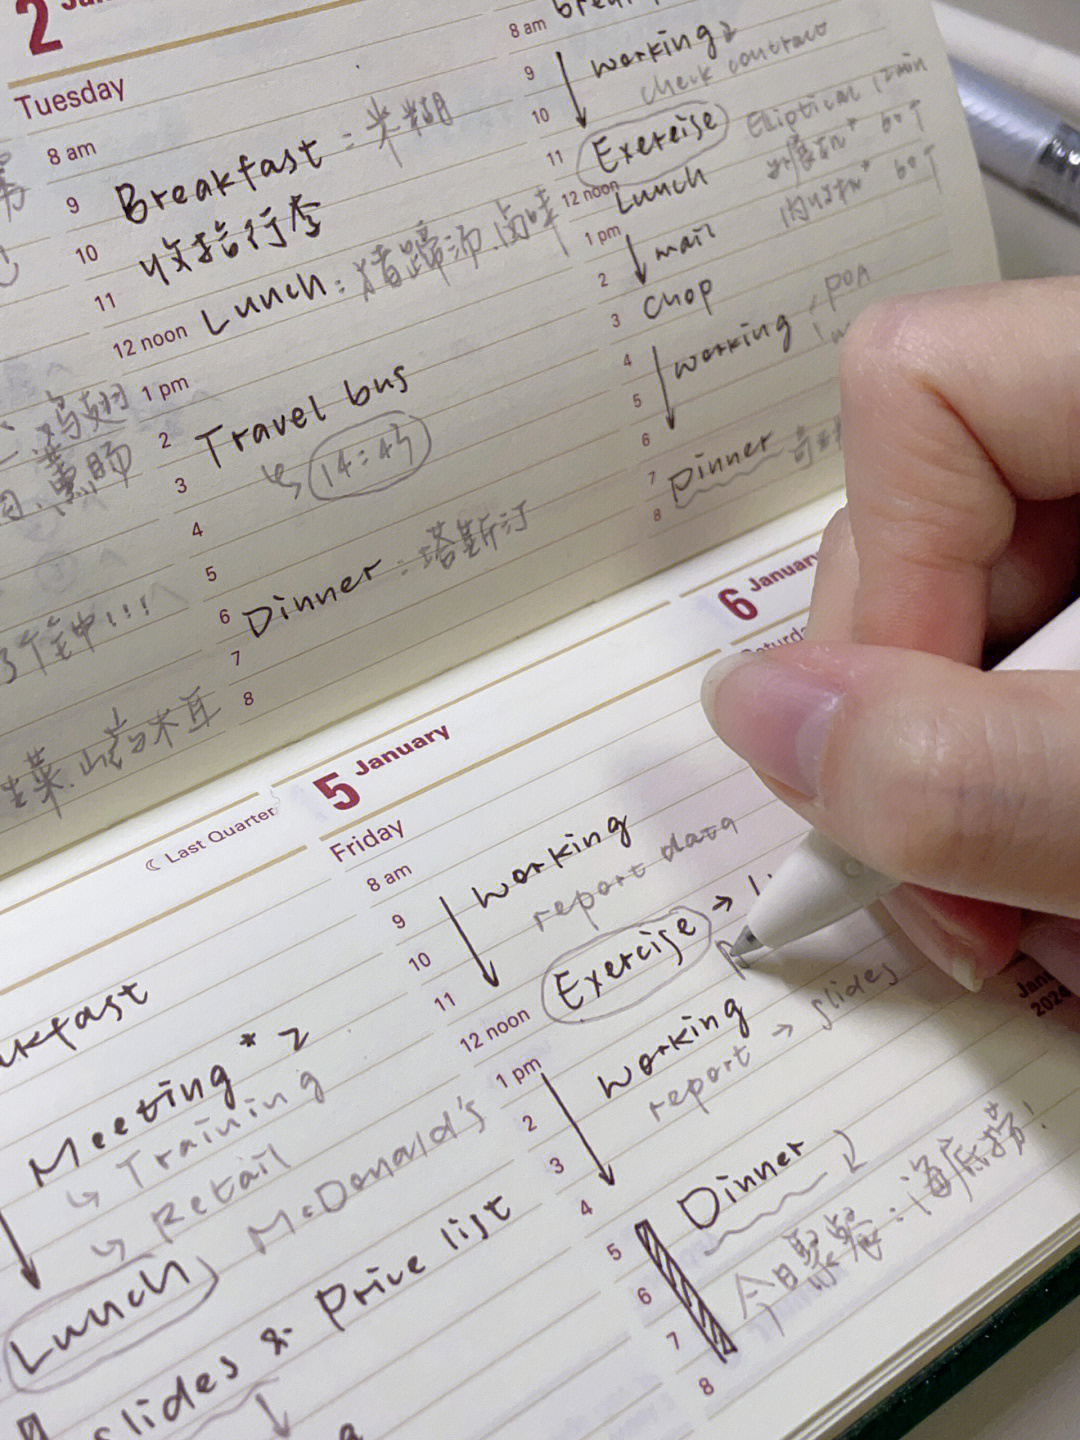 2
Tuesday
8 am
9
10
11
12 noon
1 pm
2
3
4
5
6
7
8
Breakfast : 米糊
收拾行李
Lunch : 猪蹄汤
Travel bus
14:45
Dinner : 塔斯汀
鸡翅
熏肠
!!!
木耳
8 am
9
10
11
12 noon
1 pm
2
3
4
5
6
7
8
working
check contract
Exercise Elliptical 12min
60个
60个
Lunch
mail
chop
working POA
Dinner
Last Quarter
Meeting * 2
Training
Retail
Lunch McDonald's
slides & Price list
5 January
Friday
8 am
9
10
11
12 noon
1 pm
2
3
4
5
6
7
8
working
report data
Exercise →
working
report → slides
Dinner
今日聚餐:海底捞!
6 January
2024